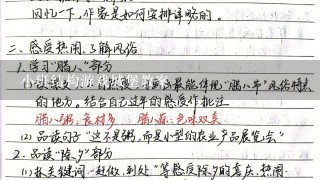 回忆一下,作家是如何安排详略的。
二、感受热闹,了解风俗
1.学习“腊八”部分
小班结构游戏城堡教案
最能体现“腊八节”风俗特点
的地方。结合自己过年的感受作批注
腊八粥:食材多 腊八蒜:色味双美
(2)品读句子“这不是粥,而是小型的农业产品展览会”
2.品读“除夕”部分
(1)抓关键词“赶做、到处”等感受除夕的喜庆、热闹